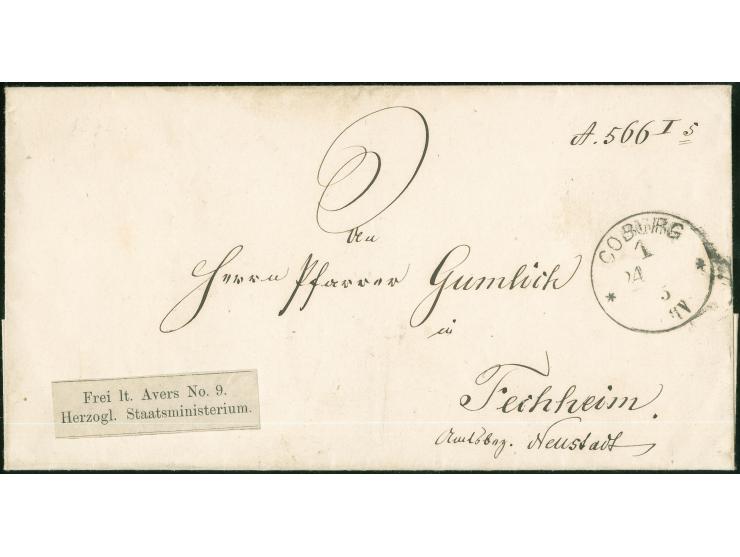 A. 566 I 5
An
Herrn Pfarrer Gumlich
in
Fechheim.
Amtsbez. Neustadt
COBURG
1
24 5
Frei lt. Avers No. 9.
Herzogl. Staatsministerium.